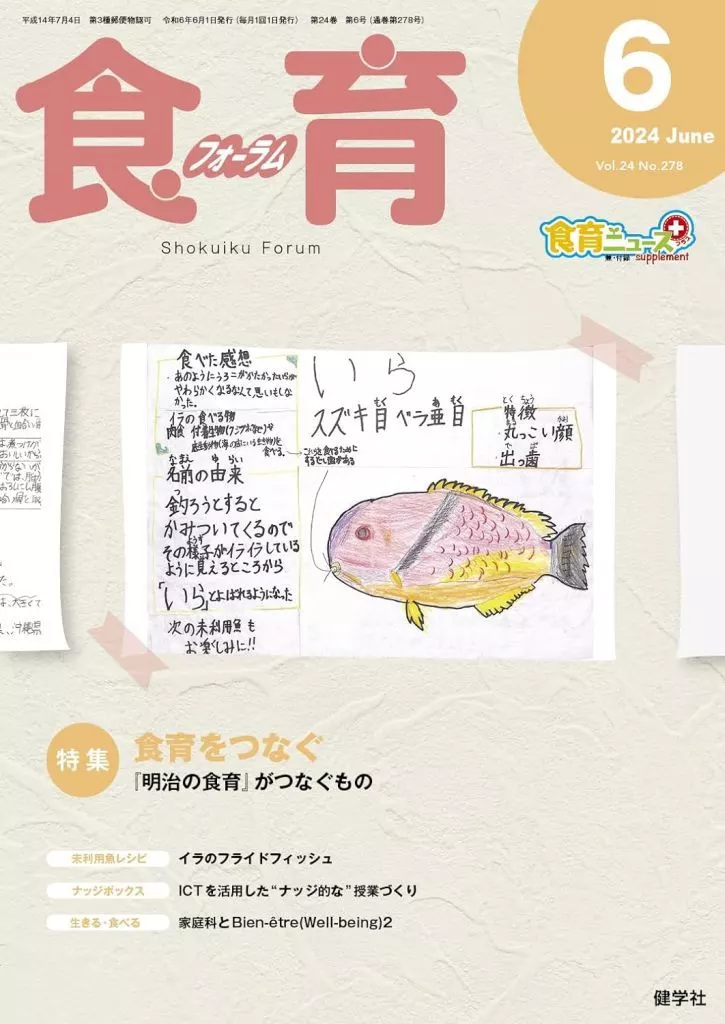 平成14年7月4日 第3種郵便物認可 令和6年6月1日発行(毎月1回1日発行) 第24巻 第6号(通巻第278号)
食育
フォーラム
Shokuiku Forum
6
2024 June
Vol.24 No.278
食育ニュース
プラス
兼・付録 supplement
食べた感想
・あのようにうろこがかたかったいらが
やわらかくなるなんて思いもしな
かった。
イラの食べる物
肉食 付着生物(フジツボなど)や
底生動物(海の底にいる生き物)を
食べる。
なまえ ゆらい
名前の由来
つ
釣ろうとすると
かみついてくるので
ようす
その様子がイライラしている
ように見えるところから
「いら」とよばれるようになった
次の未利用魚も
お楽しみに!!
いら
もく あ もく
スズキ目ベラ亜目
とくちょう
特徴
がお
・丸っこい顔
でば
・出っ歯
特集
食育をつなぐ
『明治の食育』がつなぐもの
未利用魚レシピ イラのフライドフィッシュ
ナッジボックス ICTを活用した“ナッジ的な”授業づくり
生きる・食べる 家庭科とBien-être(Well-being)2
健学社